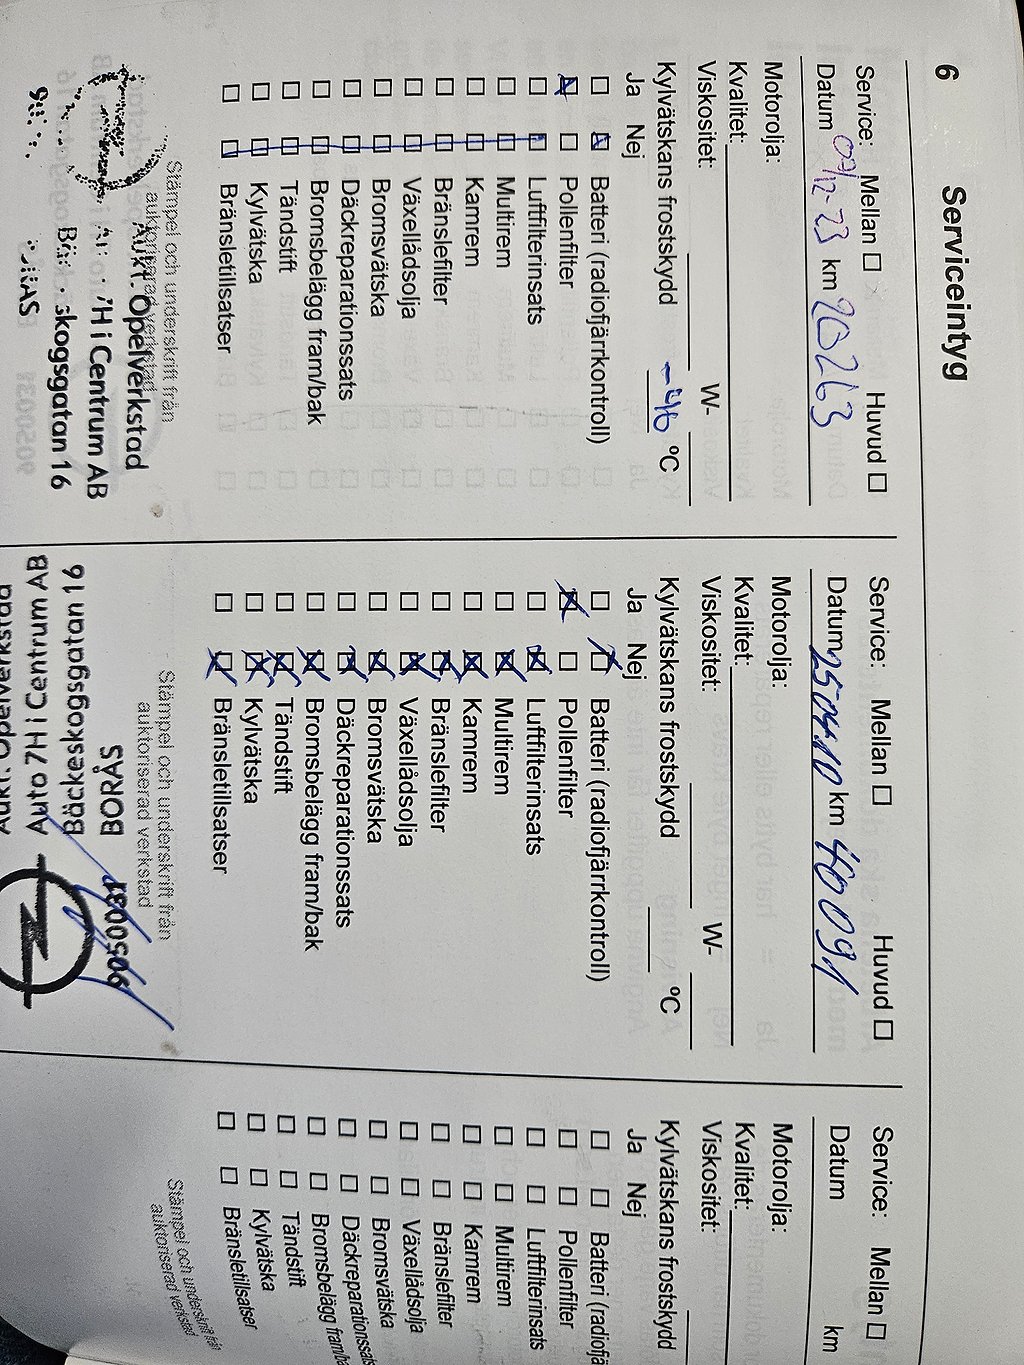 6 Serviceintyg
Service: Mellan ☐ Huvud ☐
Datum 07/12-23 km 20263
Motorolja:
Kvalitet:
Viskositet: W-
Kylvätskans frostskydd -46 °C
Ja Nej
☐ ☒ Batteri (radiofjärrkontroll)
☒ ☐ Pollenfilter
☐ ☐ Luftfilterinsats
☐ ☐ Multirem
☐ ☐ Kamrem
☐ ☐ Bränslefilter
☐ ☐ Växellådsolja
☐ ☐ Bromsvätska
☐ ☐ Däckreparationssats
☐ ☐ Bromsbelägg fram/bak
☐ ☐ Tändstift
☐ ☐ Kylvätska
☐ ☐ Bränsletillsatser
Stämpel och underskrift från
auktoriserad verkstad
Aukt. Opelverkstad
7H i Centrum AB
skogsgatan 16
Service: Mellan ☐ Huvud ☐
Datum 25-04-10 km 40091
Motorolja:
Kvalitet:
Viskositet: W-
Kylvätskans frostskydd °C
Ja Nej
☐ ☒ Batteri (radiofjärrkontroll)
☒ ☐ Pollenfilter
☐ ☒ Luftfilterinsats
☐ ☒ Multirem
☐ ☒ Kamrem
☐ ☒ Bränslefilter
☐ ☒ Växellådsolja
☐ ☒ Bromsvätska
☐ ☒ Däckreparationssats
☐ ☒ Bromsbelägg fram/bak
☐ ☒ Tändstift
☐ ☒ Kylvätska
☐ ☒ Bränsletillsatser
Stämpel och underskrift från
auktoriserad verkstad
Aukt. Opelverkstad
Auto 7H i Centrum AB
Bäckeskogsgatan 16
BORÅS
Service: Mellan ☐
Datum km
Motorolja:
Kvalitet:
Viskositet:
Kylvätskans frostskydd
Ja Nej
☐ ☐ Batteri (radiofjä
☐ ☐ Pollenfilter
☐ ☐ Luftfilterinsats
☐ ☐ Multirem
☐ ☐ Kamrem
☐ ☐ Bränslefilter
☐ ☐ Växellådsolja
☐ ☐ Bromsvätska
☐ ☐ Däckreparationssats
☐ ☐ Bromsbelägg fram/ba
☐ ☐ Tändstift
☐ ☐ Kylvätska
☐ ☐ Bränsletillsatser
Stämpel och underskrift från
auktoriserad verkstad